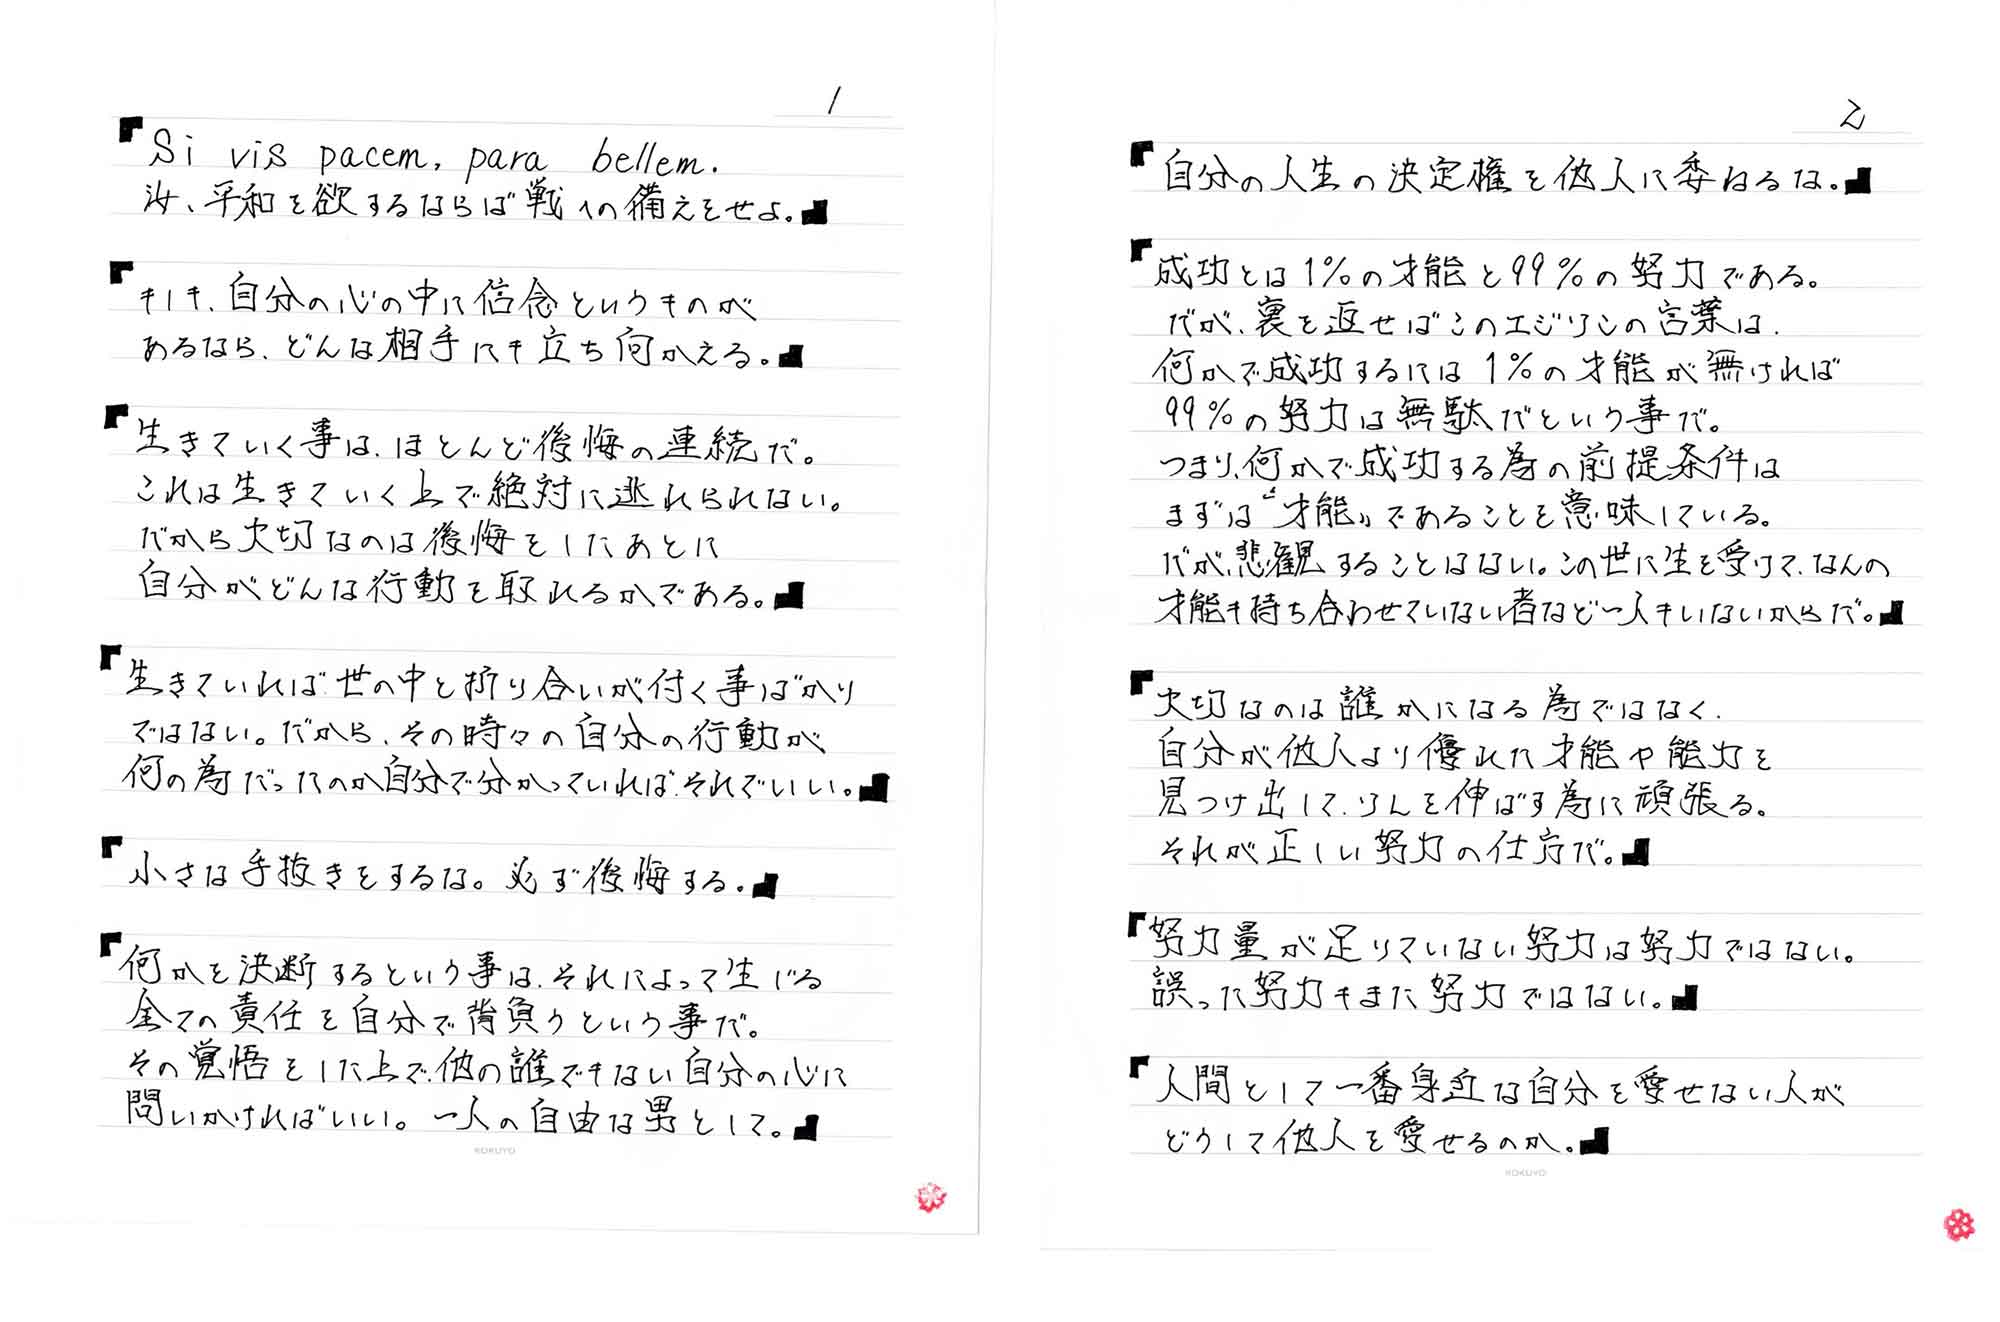 1
『Si vis pacem, para bellem.
汝、平和を欲するならば戦への備えをせよ。』
『もしも、自分の心の中に信念というものが
あるなら、どんな相手にも立ち向かえる。』
『生きていく事は、ほとんど後悔の連続だ。
これは生きていく上で絶対に逃れられない。
だから大切なのは後悔をしたあとに
自分がどんな行動を取れるかである。』
『生きていれば、世の中と折り合いが付く事ばかり
ではない。だから、その時々の自分の行動が
何の為だったのか自分で分かっていれば、それでいい。』
『小さな手抜きをするな。必ず後悔する。』
『何かを決断するという事は、それによって生じる
全ての責任を自分で背負うという事だ。
その覚悟をした上で、他の誰でもない自分の心に
問いかければいい。一人の自由な男として。』
KOKUYO
2
『自分の人生の決定権を他人に委ねるな。』
『成功とは1%の才能と99%の努力である。
だが、裏を返せばこのエジソンの言葉は、
何かで成功するには1%の才能が無ければ
99%の努力は無駄だという事だ。
つまり、何かで成功する為の前提条件は
まずは“才能”であることを意味している。
だが、悲観することはない。この世に生を受けて、なんの
才能も持ち合わせていない者など一人もいないからだ。』
『大切なのは誰かになる為ではなく、
自分が他人より優れた才能や能力を
見つけ出して、それを伸ばす為に頑張る。
それが正しい努力の仕方だ。』
『努力量が足りていない努力は努力ではない。
誤った努力もまた努力ではない。』
『人間として一番身近な自分を愛せない人が
どうして他人を愛せるのか。』
KOKUYO